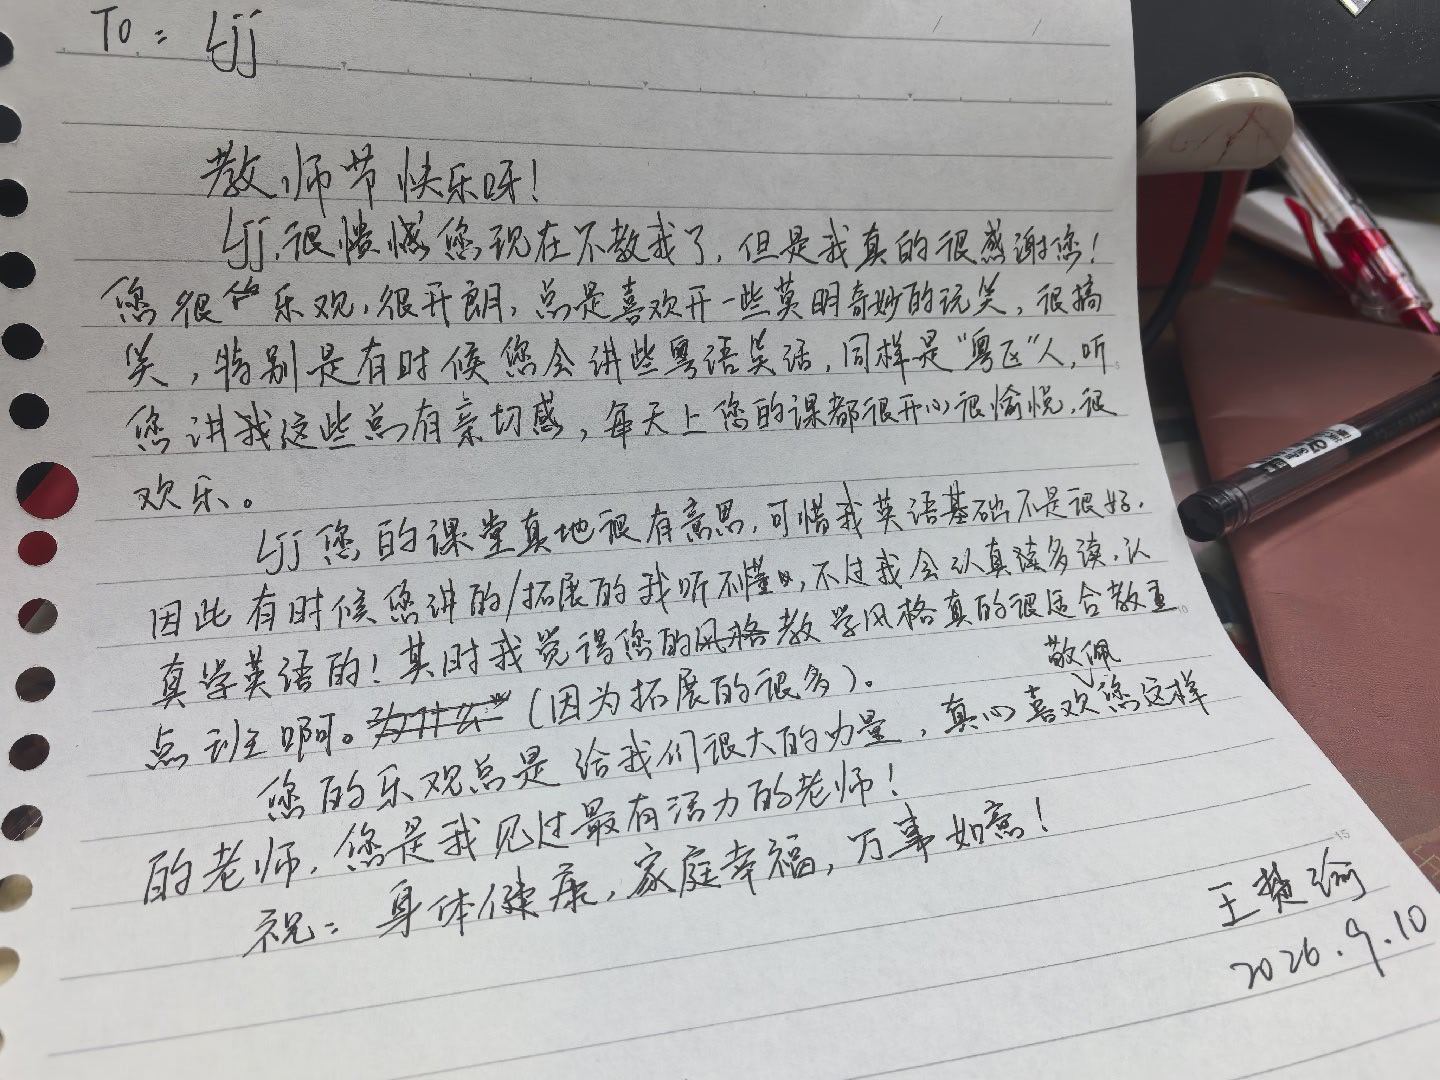 To: Ljj
教师节快乐呀!
Ljj,很遗憾您现在不教我了,但是我真的很感谢您!
您很乐观,很开朗,总是喜欢开一些莫明奇妙的玩笑,很搞
笑,特别是有时候您会讲些粤语笑话,同样是“粤区”人,听
您讲我这些总有亲切感,每天上您的课都很开心很愉悦,很
欢乐。
Ljj您的课堂真地很有意思,可惜我英语基础不是很好,
因此有时候您讲的/拓展的我听不懂,不过我会认真读多读,认
真学英语的!其时我觉得您的风格教学风格真的很适合教重
点班啊。为什么(因为拓展的很多)。
敬佩
您的乐观总是给我们很大的力量,真心喜欢您这样
的老师,您是我见过最有活力的老师!
祝:身体健康,家庭幸福,万事如意!
王楚
2026.9.10